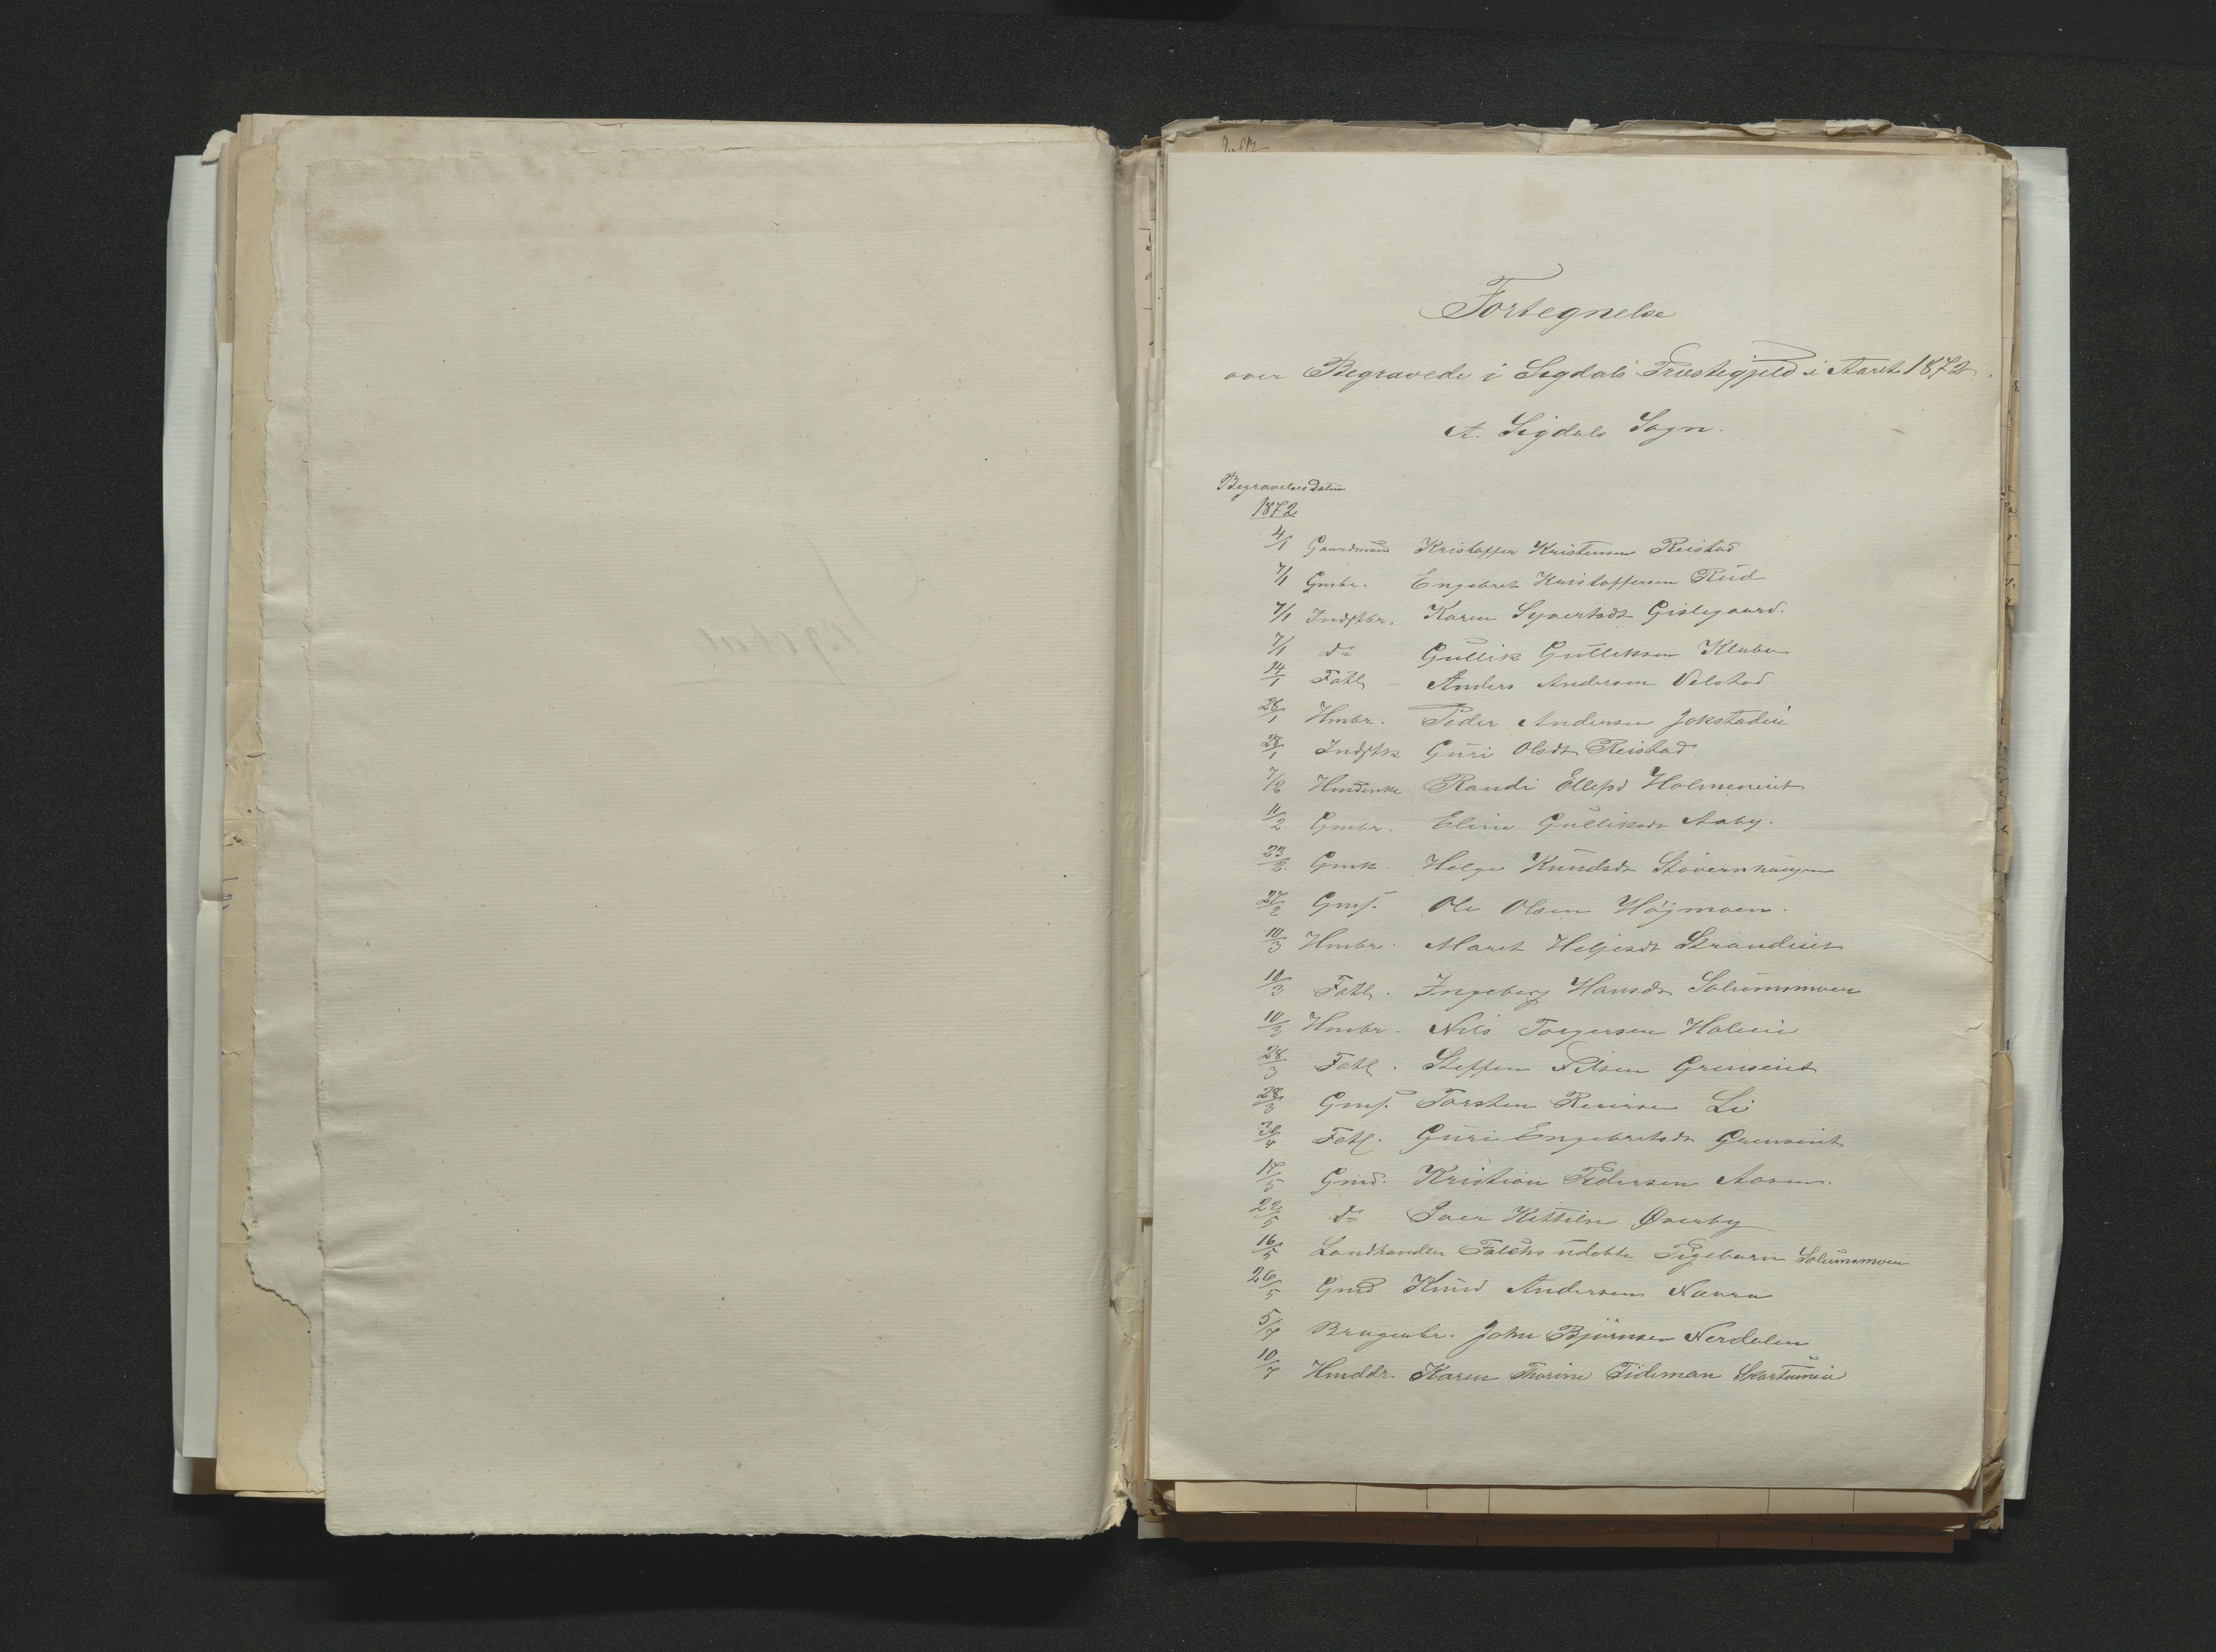 Fortegnelse
over Begravede i Sigdals Præstegjeld i Aaret 1872.
A. Sigdals Sogn.
Begravelses Datum
1872
4/1 Gaardmand Kristoffer Kristensen Reistad
7/1 Gmbr. Engebret Kristoffersen Rud
7/1 Indstbr. Karen Syvertsdt Gislegaard.
7/1 do Gullik Gulliksen
14/1 Fatl. Anders Andersen Velstad
28/1 Hmbr. Peder Andersen
28/1 Indstk Guri Olsdt Reistad
7/2 Hmdenke Randi Ellefsd Holmeneiet
11/2. Gmbr. Eline Gulliksdt Aaby.
23/2. Gmk. Helge Knudsdt
27/2 Gmf. Ole Olsen Højmoen.
10/3 Hmbr. Maret Heljesdt Skrandeiet
10/3 Fatl. Ingeborg Hansdt Solumsmoen
10/3 Hmbr. Nils Torgersen
28/3 Fatl. Steffen Nilsen Grenseiet
28/3 Gmf. Torsten Reiersen Li
Fatl. Guri Engebretsdt Grenseiet
17/5 Gmd. Kristian Pedersen Aasen.
do Iver Kittilsen Øverby
16/5 Landhandler Falchs udøbte Pigebarn Solumsmoen
26/5 Gmd Knud Andersen Narra
5/7 Brugenbr. John Bjørnsen Nerdalen
10/7 Hmddr. Karen Thorine Tideman